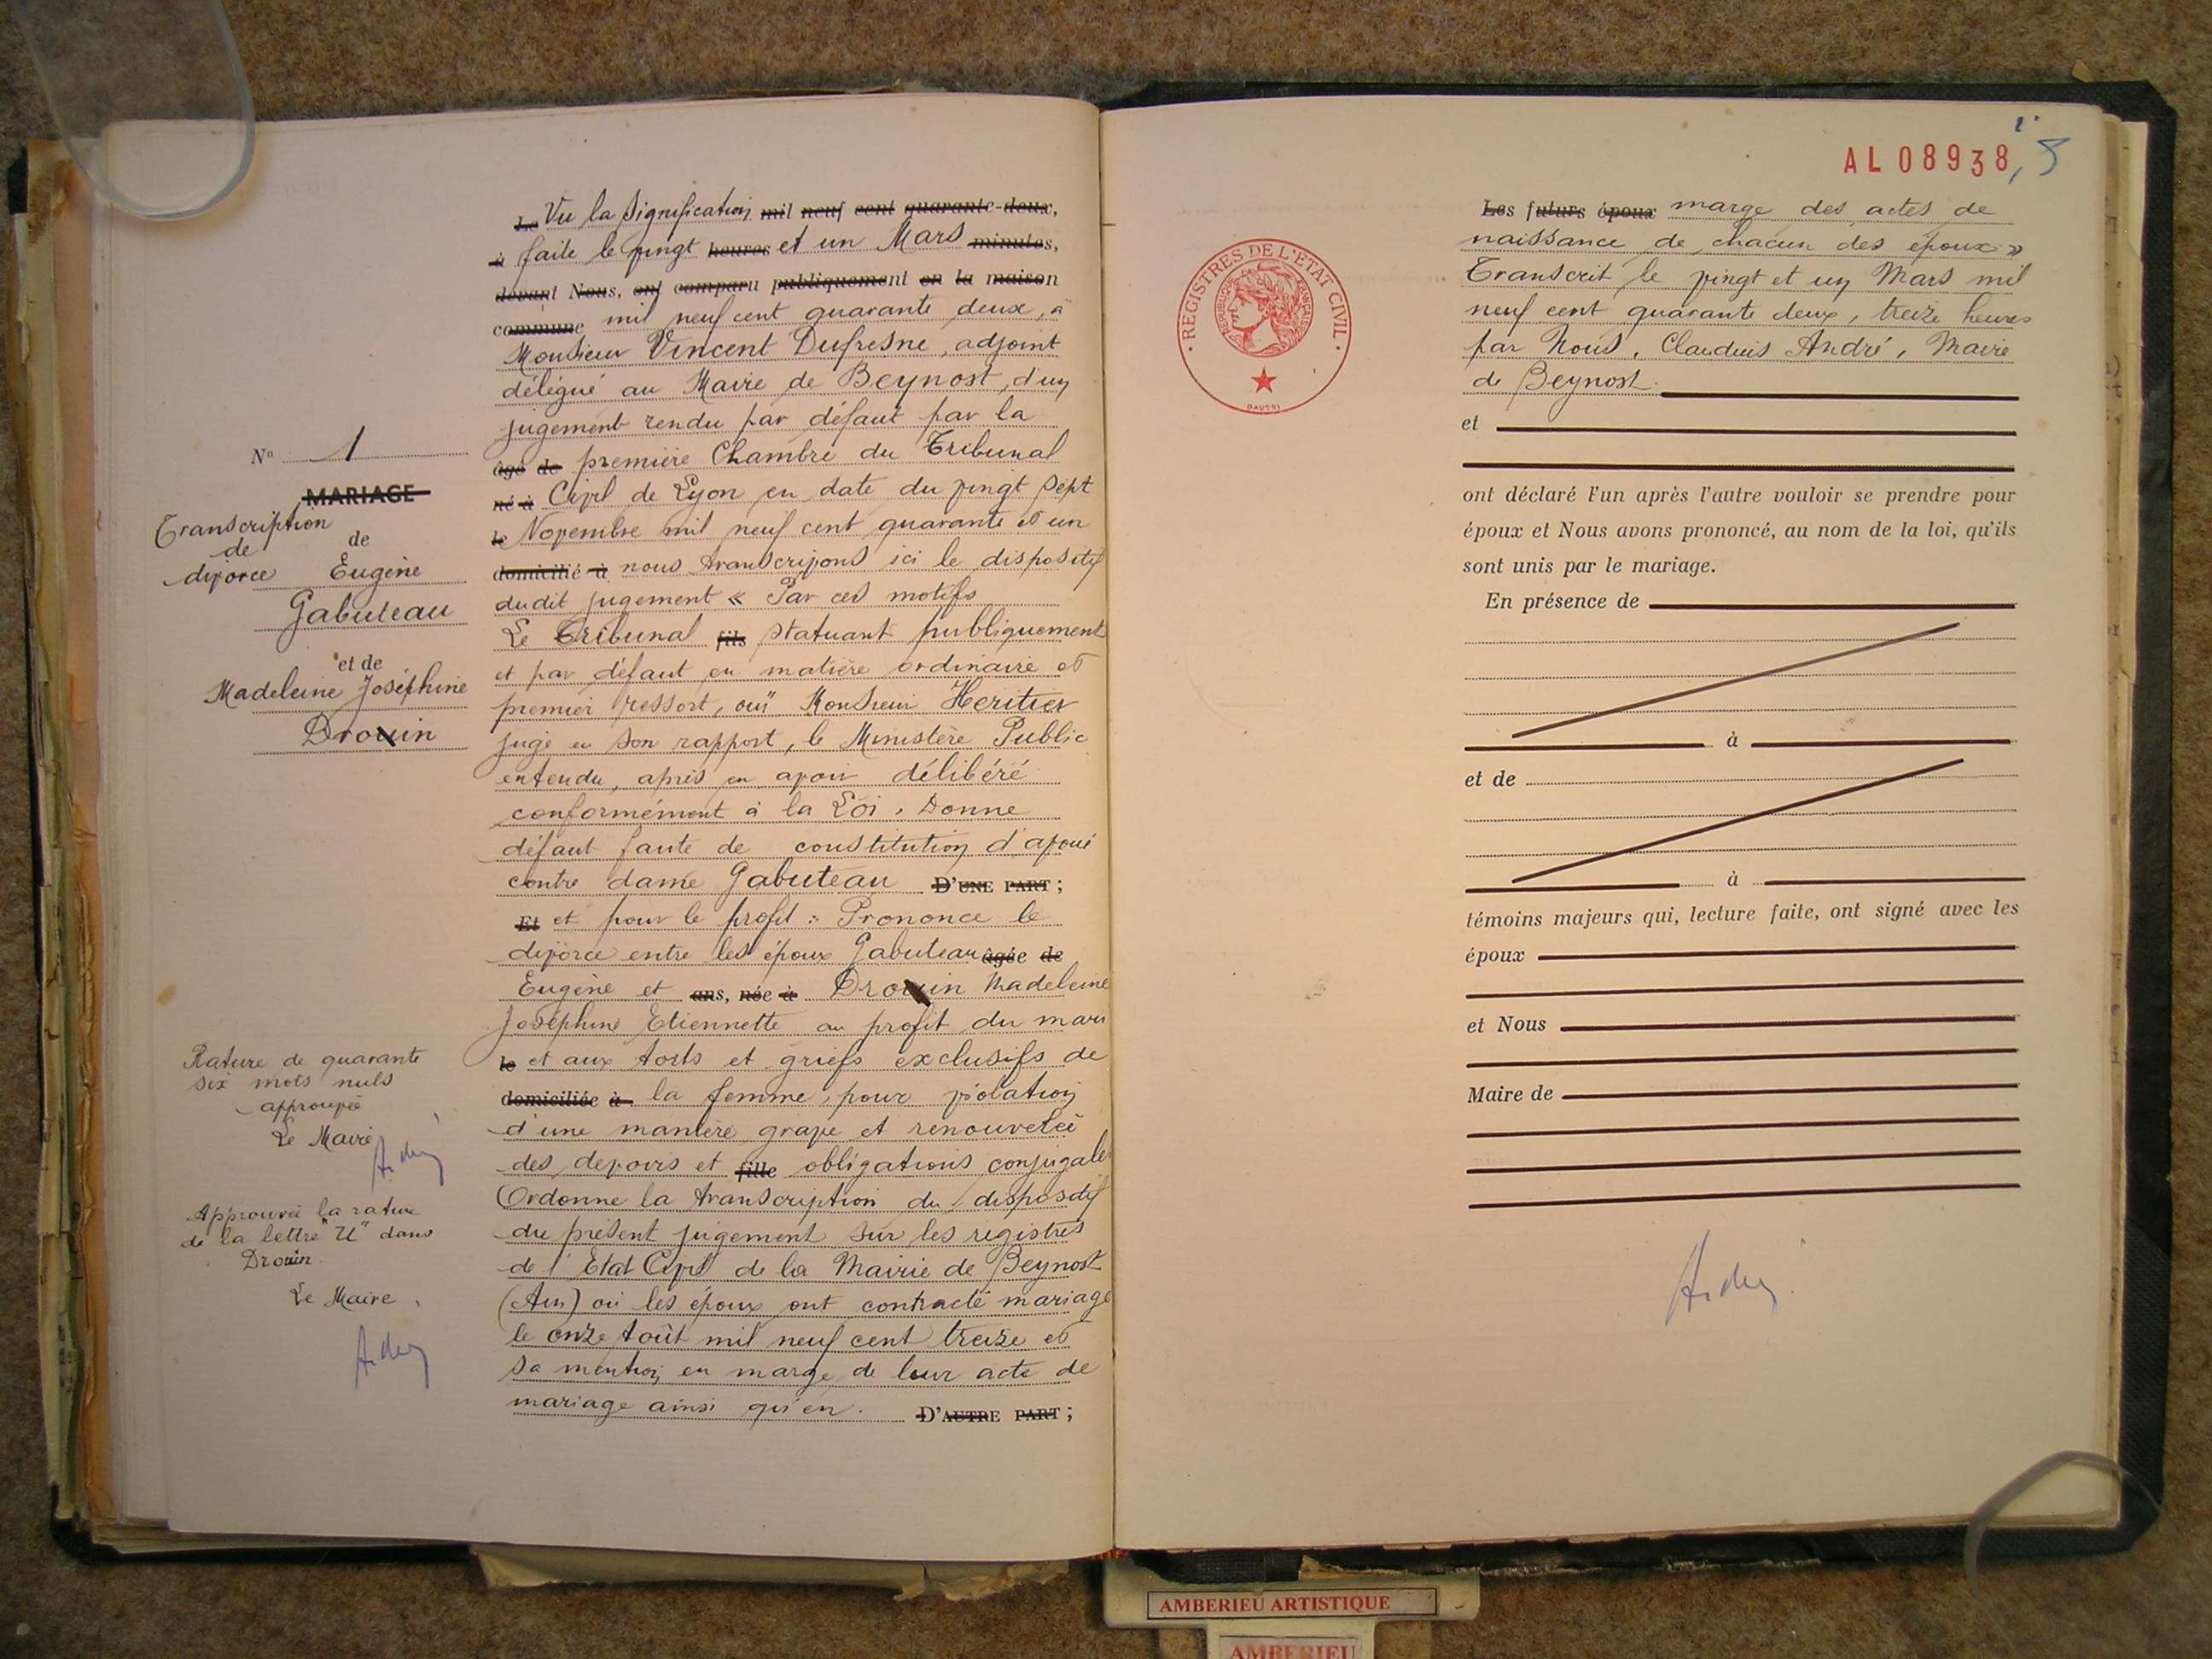 N° 1
MARIAGE
Transcription
de
divorce
de
Eugène
Gabuteau
et de
Madeleine Joséphine
Drouin
Rature de quarante
six mots nuls
approuvée
Le Maire
André
Approuvée la rature
de la lettre "U" dans
Drouin.
Le Maire,
André
Le Vu la signification mil neuf cent quarante-deux,
à faite le vingt heures et un Mars minutes,
devant Nous, ont comparu publiquement en la maison
commune mil neuf cent quarante deux, à
Monsieur Vincent Dufresne, adjoint
délégué au Maire de Beynost, d'un
jugement rendu par défaut par la
âgé de première Chambre du Tribunal
né à Civil de Lyon en date du vingt sept
le Novembre mil neuf cent quarante et un
domicilié à nous transcrivons ici le dispositif
dudit jugement « Par ces motifs
Le Tribunal fils statuant publiquement
et par défaut en matière ordinaire et
premier ressort, ouï Monsieur Heritier
juge en son rapport, le Ministère Public
entendu, après en avoir délibéré
conformément à la Loi, Donne
défaut faute de constitution d'avoué
contre dame Gabuteau D'UNE PART ;
Et et pour le profit : Prononce le
divorce entre les époux Gabuteau âgée de
Eugène et ans, née à Drouin Madeleine
Joséphine Etiennette au profit du mari
le et aux torts et griefs exclusifs de
domiciliée à la femme, pour violation
d'une manière grave et renouvelée
des devoirs et fille obligations conjugales
Ordonne la transcription du dispositif
du présent jugement sur les registres
de l'Etat Civil de la Mairie de Beynost
(Ain) où les époux ont contracté mariage
le onze Août mil neuf cent treize et
sa mention en marge de leur acte de
mariage ainsi qu'en. D'AUTRE PART ;
AL 08938
REGISTRES DE L'ÉTAT CIVIL
RÉPUBLIQUE FRANÇAISE
DAUSSI
Les futurs époux marge des actes de
naissance de chacun des époux »
Transcrit le vingt et un Mars mil
neuf cent quarante deux, treize heures
par Nous, Claudius André, Maire
de Beynost.
et
ont déclaré l'un après l'autre vouloir se prendre pour
époux et Nous avons prononcé, au nom de la loi, qu'ils
sont unis par le mariage.
En présence de
à
et de
à
témoins majeurs qui, lecture faite, ont signé avec les
époux
et Nous
Maire de
André
AMBERIEU ARTISTIQUE
AMBERIEU